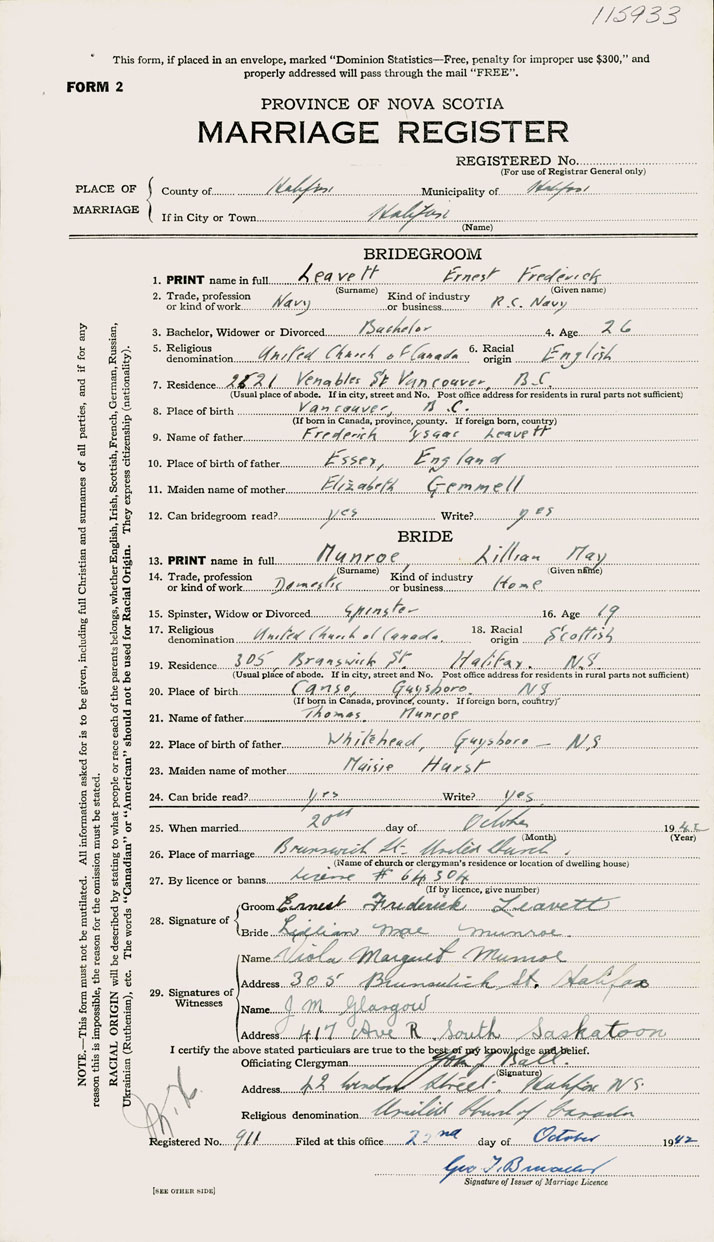 115933
This form, if placed in an envelope, marked "Dominion Statistics—Free, penalty for improper use $300," and
properly addressed will pass through the mail "FREE".
FORM 2
PROVINCE OF NOVA SCOTIA
MARRIAGE REGISTER
REGISTERED No.
(For use of Registrar General only)
PLACE OF MARRIAGE
County of Halifax Municipality of Halifax
If in City or Town Halifax
(Name)
BRIDEGROOM
1. PRINT name in full Leavett Ernest Frederick
(Surname) (Given name)
2. Trade, profession or kind of work Navy Kind of industry or business R.C. Navy
3. Bachelor, Widower or Divorced Bachelor 4. Age 26
5. Religious denomination United Church of Canada 6. Racial origin English
7. Residence 2821 Venables St Vancouver, B.C.
(Usual place of abode. If in city, street and No. Post office address for residents in rural parts not sufficient)
8. Place of birth Vancouver, B.C.
(If born in Canada, province, county. If foreign born, country)
9. Name of father Frederick Ysaac Leavett
10. Place of birth of father Essex, England
11. Maiden name of mother Elizabeth Gemmell
12. Can bridegroom read? yes Write? yes
BRIDE
13. PRINT name in full Munroe, Lillian May
(Surname) (Given name)
14. Trade, profession or kind of work Domestic Kind of industry or business Home
15. Spinster, Widow or Divorced Spinster 16. Age 19
17. Religious denomination United Church of Canada. 18. Racial origin Scottish
19. Residence 305, Brunswick St. Halifax. N.S.
(Usual place of abode. If in city, street and No. Post office address for residents in rural parts not sufficient)
20. Place of birth Canso, Guysboro. NS
(If born in Canada, province, county. If foreign born, country)
21. Name of father Thomas Munroe
22. Place of birth of father Whitehead, Guysboro — N.S
23. Maiden name of mother Maisie Hurst
24. Can bride read? yes Write? yes
25. When married 20th day of October 1942
(Month) (Year)
26. Place of marriage Brunswick St. United Church.
(Name of church or clergyman's residence or location of dwelling house)
27. By licence or banns License # 64304
(If by licence, give number)
28. Signature of
Groom Ernest Frederick Leavett
Bride Lillian Mae Munroe.
29. Signatures of Witnesses
Name Viola Marguet Munroe
Address 305 Brunswick St. Halifax
Name J M Glasgow
Address 417 Ave R South Saskatoon
I certify the above stated particulars are true to the best of my knowledge and belief.
Officiating Clergyman John J Ball.
(Signature)
Address 42 Windsor Street. Halifax N.S.
Religious denomination United Church of Canada
Registered No. 911 Filed at this office 22nd day of October 1942
Signature of Issuer of Marriage Licence
[SEE OTHER SIDE]
NOTE.—This form must not be mutilated. All information asked for is to be given, including full Christian and surnames of all parties, and if for any
reason this is impossible, the reason for the omission must be stated.
RACIAL ORIGIN will be described by stating to what people or race each of the parents belongs, whether English, Irish, Scottish, French, German, Russian,
Ukrainian (Ruthenian), etc. The words "Canadian" or "American" should not be used for Racial Origin. They express citizenship (nationality).